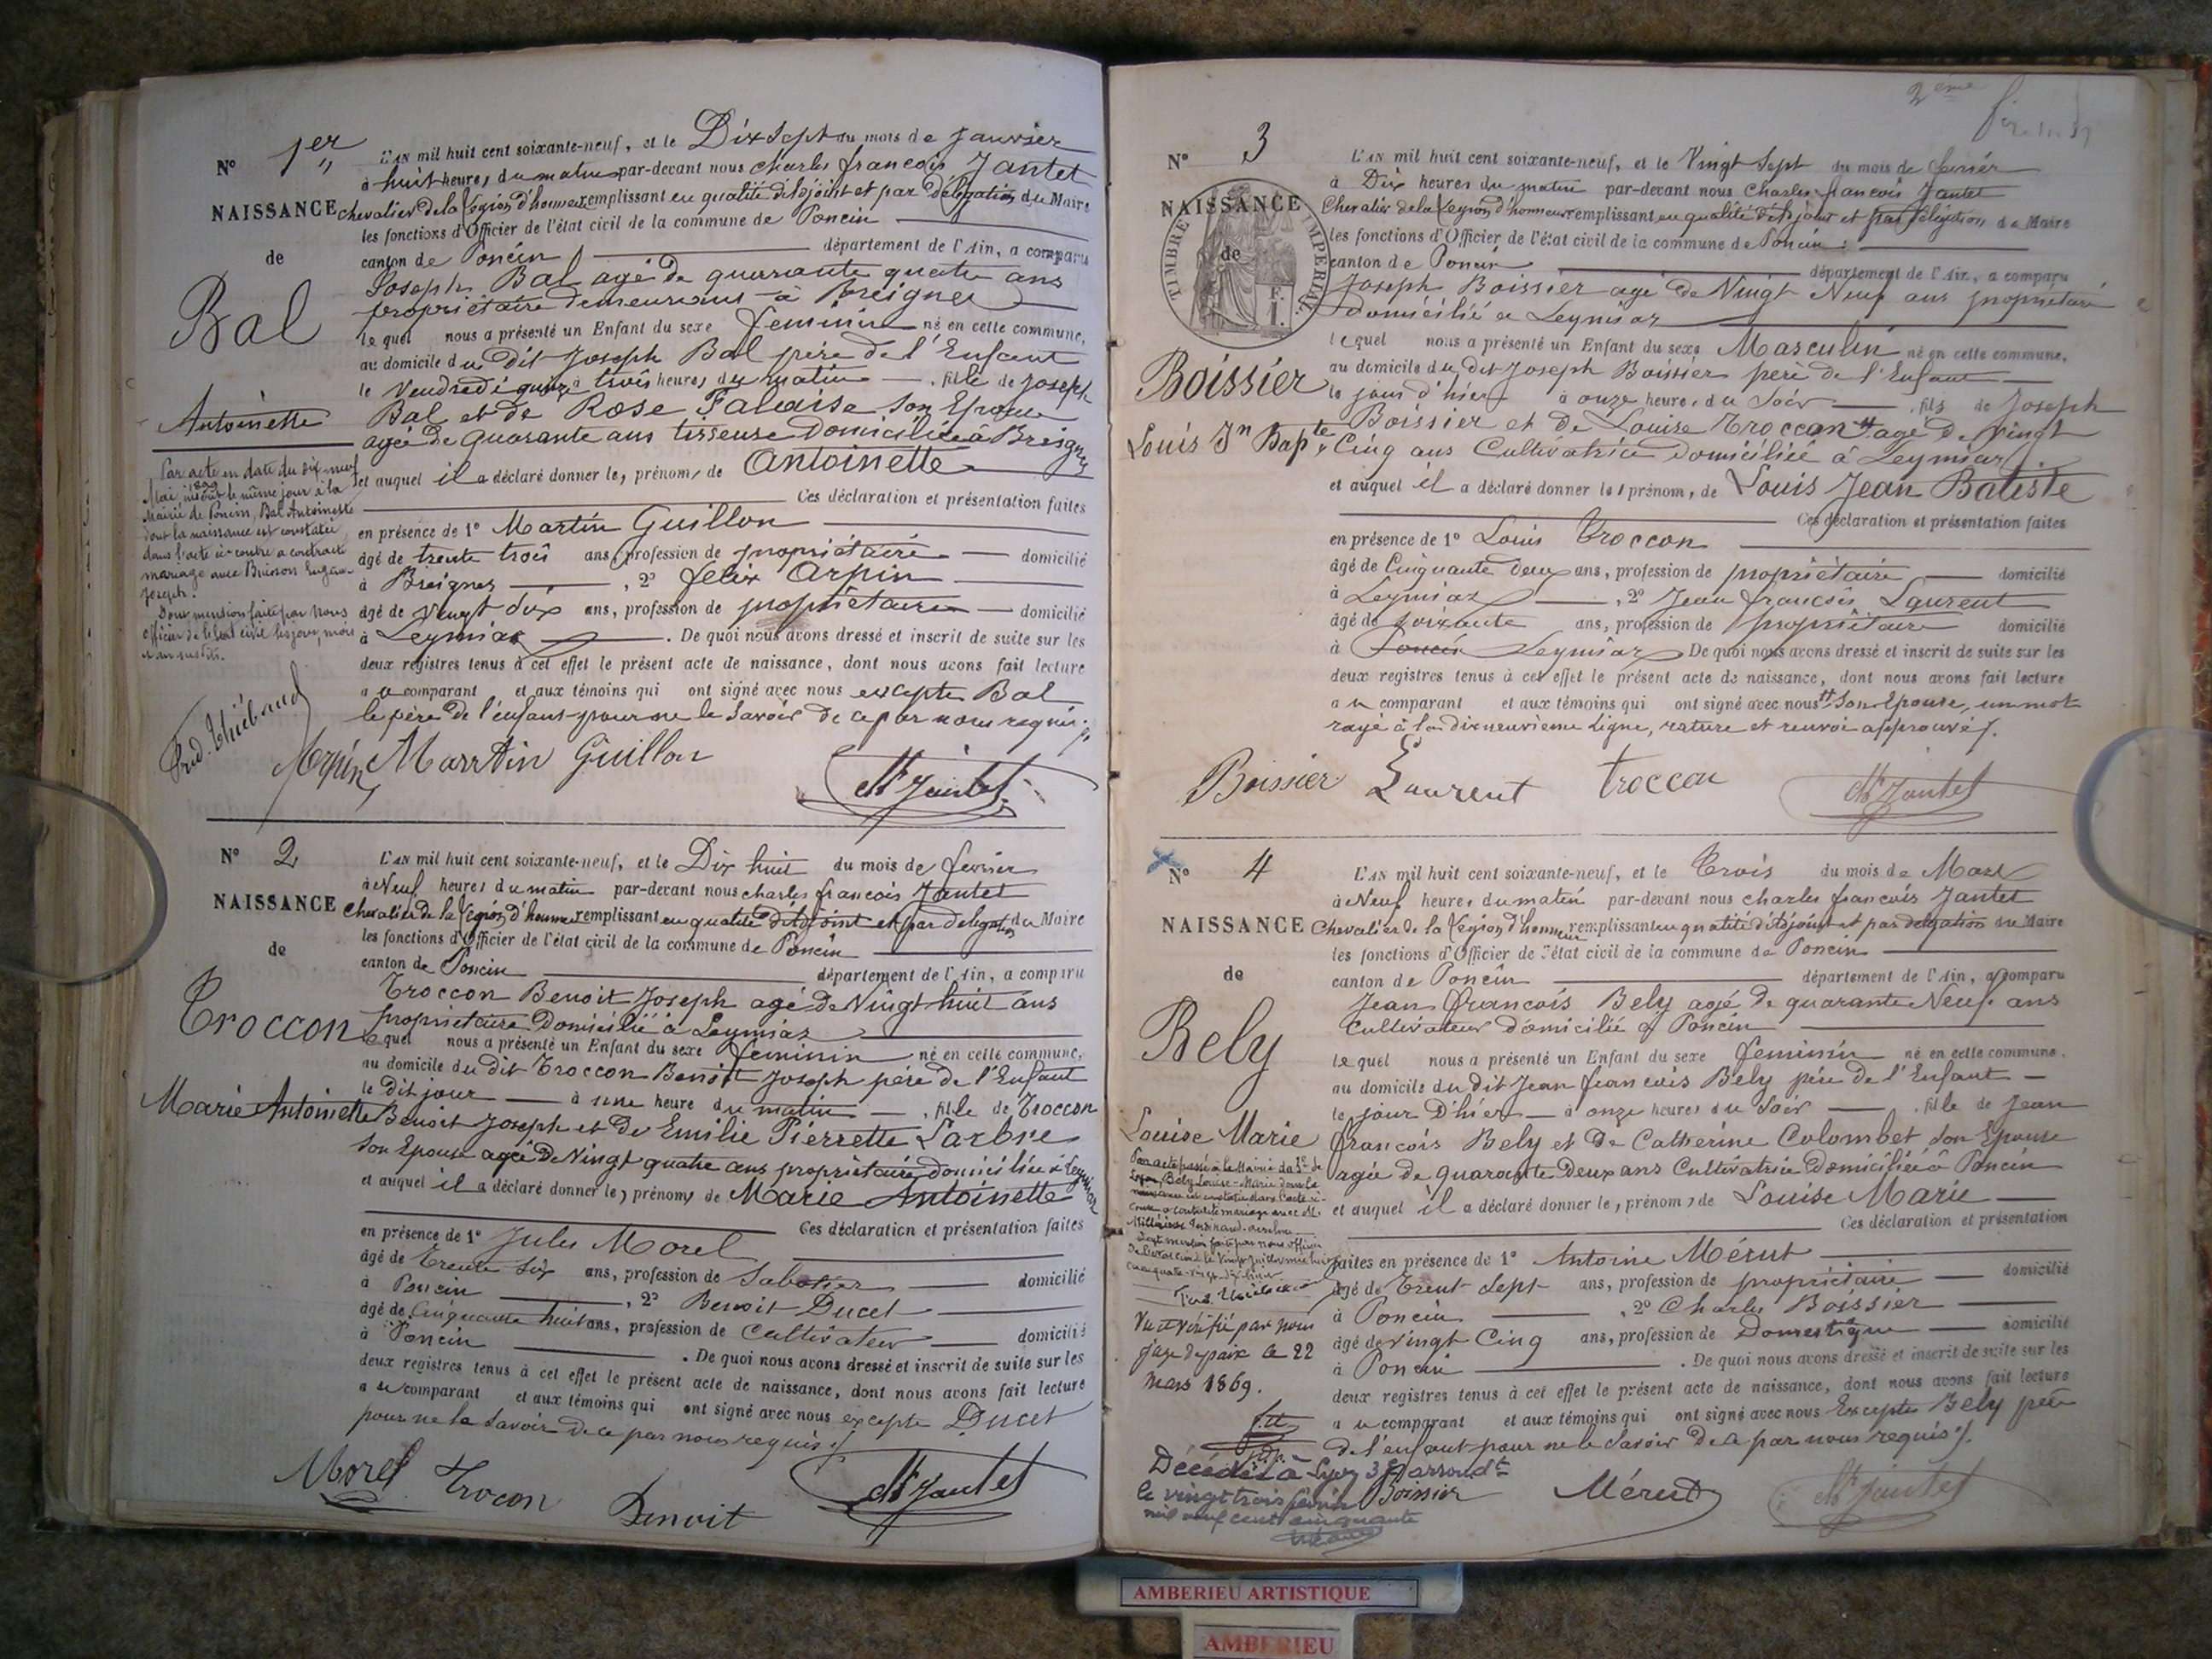 Nº 1er
NAISSANCE
de
Bal
Antoinette
L'AN mil huit cent soixante-neuf, et le Dix Sept du mois de Janvier
à huit heures du matin par-devant nous Charles françois Jantet
chevalier de la Légion d'honneur remplissant en qualité d'adjoint et par Délégation du Maire
les fonctions d'Officier de l'état civil de la commune de Poncin
canton de Poncin département de l'Ain, a comparu
Joseph Bal agé de quarante quatre ans
propriétaire demeurant à Breignes
le quel nous a présenté un Enfant du sexe feminin né en cette commune,
au domicile du dit Joseph Bal père de l'Enfant
le Vendredi quinze à trois heures du matin , fille de Joseph
Bal et de Rose Falaise son Epouse
agée de quarante ans tisseuse Domiciliée à Breignes
et auquel il a déclaré donner les prénoms de Antoinette
Ces déclaration et présentation faites
en présence de 1º Martin Guillon
âgé de trente trois ans, profession de propriétaire domicilié
à Breignes , 2º felix Arpin
âgé de Vingt dix ans, profession de propriétaire domicilié
à Leymiaz . De quoi nous avons dressé et inscrit de suite sur les
deux registres tenus à cet effet le présent acte de naissance, dont nous avons fait lecture
au comparant et aux témoins qui ont signé avec nous excepté Bal
le père de l'enfant pour ne le Savoir de ce par nous requis
Par acte en date du dix neuf
Mai 1899 inscrit le même jour à la
Mairie de Poncin, Bal Antoinette
dont la naissance est constatée
dans l'acte ci-contre a contracté
mariage avec Buisson Eugène
Joseph.
Dont mention faite par nous
officier de l'état civil les jour, mois
et an susdits.
Fred. Thiébaud
Arpin Marrtin Guillon Ch Jantet
Nº 2
NAISSANCE
de
Troccon
Marie Antoinette
L'AN mil huit cent soixante-neuf, et le Dix huit du mois de février
à Neuf heures du matin par-devant nous charles francois Jantet
chevalier de la Légion d'honneur remplissant en qualité d'adjoint et par délégation du Maire
les fonctions d'Officier de l'état civil de la commune de Poncin
canton de Poncin département de l'Ain, a comparu
Troccon Benoit Joseph agé de Vingt huit ans
propriétaire Domicilié à Leymiaz
le quel nous a présenté un Enfant du sexe féminin né en cette commune,
au domicile du dit Troccon Benoit Joseph père de l'Enfant
le Dit jour à une heure du matin , fille de Troccon
Benoit Joseph et de Emilie Pierrette Larbre
son Epouse agée de Vingt quatre ans propriétaire domiciliée à Leymiaz
et auquel il a déclaré donner les prénoms de Marie Antoinette
Ces déclaration et présentation faites
en présence de 1º Jules Morel
âgé de Trente Six ans, profession de Sabotier domicilié
à Poncin , 2º Benoit Ducet
âgé de Cinquante huit ans, profession de Cultivateur domicilié
à Poncin . De quoi nous avons dressé et inscrit de suite sur les
deux registres tenus à cet effet le présent acte de naissance, dont nous avons fait lecture
au comparant et aux témoins qui ont signé avec nous excepté Ducet
pour ne le Savoir de ce par nous requis
Morel Trocon Benoit Ch Jantet
2ème
Nº 3
NAISSANCE
de
TIMBRE IMPERIAL
Boissier
Louis Jn Bapte
L'AN mil huit cent soixante-neuf, et le Vingt Sept du mois de février
à Dix heures du matin par-devant nous Charles francois Jantet
Chevalier de la Légion d'honneur remplissant en qualité d'adjoint et par délégation du Maire
les fonctions d'Officier de l'état civil de la commune de Poncin
canton de Poncin département de l'Ain, a comparu
Joseph Boissier agé de Vingt Neuf ans propriétaire
Domicilié à Leymiaz
le quel nous a présenté un Enfant du sexe Masculin né en cette commune,
au domicile du dit Joseph Boissier père de l'Enfant
le jour d'hier à onze heures du Soir , fils de Joseph
Boissier et de Louise Troccon # agé de Vingt
Cinq ans Cultivatrice domiciliée à Leymiaz
et auquel il a déclaré donner les prénoms de Louis Jean Batiste
Ces déclaration et présentation faites
en présence de 1º Louis Troccon
âgé de Cinquante deux ans, profession de propriétaire domicilié
à Leymiaz , 2º Jean francois Laurent
âgé de soixante ans, profession de propriétaire domicilié
à Poncin Leymiaz De quoi nous avons dressé et inscrit de suite sur les
deux registres tenus à cet effet le présent acte de naissance, dont nous avons fait lecture
au comparant et aux témoins qui ont signé avec nous # Son Epouse, un mot
rayé à la dixneuvieme ligne, rature et renvoi approuvés.
Boissier Laurent Troccon Ch Jantet
Nº 4
NAISSANCE
de
Bely
Louise Marie
L'AN mil huit cent soixante-neuf, et le Trois du mois de Mars
à Neuf heures du matin par-devant nous charles francois Jantet
Chevalier de la Légion d'honneur remplissant en qualité d'adjoint et par délégation du Maire
les fonctions d'Officier de l'état civil de la commune de Poncin
canton de Poncin département de l'Ain, a comparu
Jean francois Bely agé de quarante Neuf ans
Cultivateur domicilié à Poncin
le quel nous a présenté un Enfant du sexe feminin né en cette commune,
au domicile du dit Jean francois Bely père de l'Enfant
le jour D'hier à onze heures du Soir , fille de Jean
francois Bely et de Catherine Colombet Son Epouse
agée de quarante Deux ans Cultivatrice Domiciliée à Poncin
et auquel il a déclaré donner les prénoms de Louise Marie
Ces déclaration et présentation
faites en présence de 1º Antoine Mérut
âgé de Trent Sept ans, profession de propriétaire domicilié
à Poncin , 2º Charles Boissier
âgé de Vingt Cinq ans, profession de Domestique domicilié
à Poncin . De quoi nous avons dressé et inscrit de suite sur les
deux registres tenus à cet effet le présent acte de naissance, dont nous avons fait lecture
au comparant et aux témoins qui ont signé avec nous Excepté Bely père
de l'enfant pour ne le Savoir de ce par nous requis
Par acte passé à la Mairie du
Bely Louise-Marie dont la
naissance est constatée dans l'acte ci-
contre a contracté mariage avec
Vu et vérifié par nous
Juge de paix le 22
Mars 1869.
Décédée à Lyon 3e arrondt
le vingt trois février
mil neuf cent cinquante
Boissier Mérut Ch Jantet
AMBERIEU ARTISTIQUE
AMBERIEU